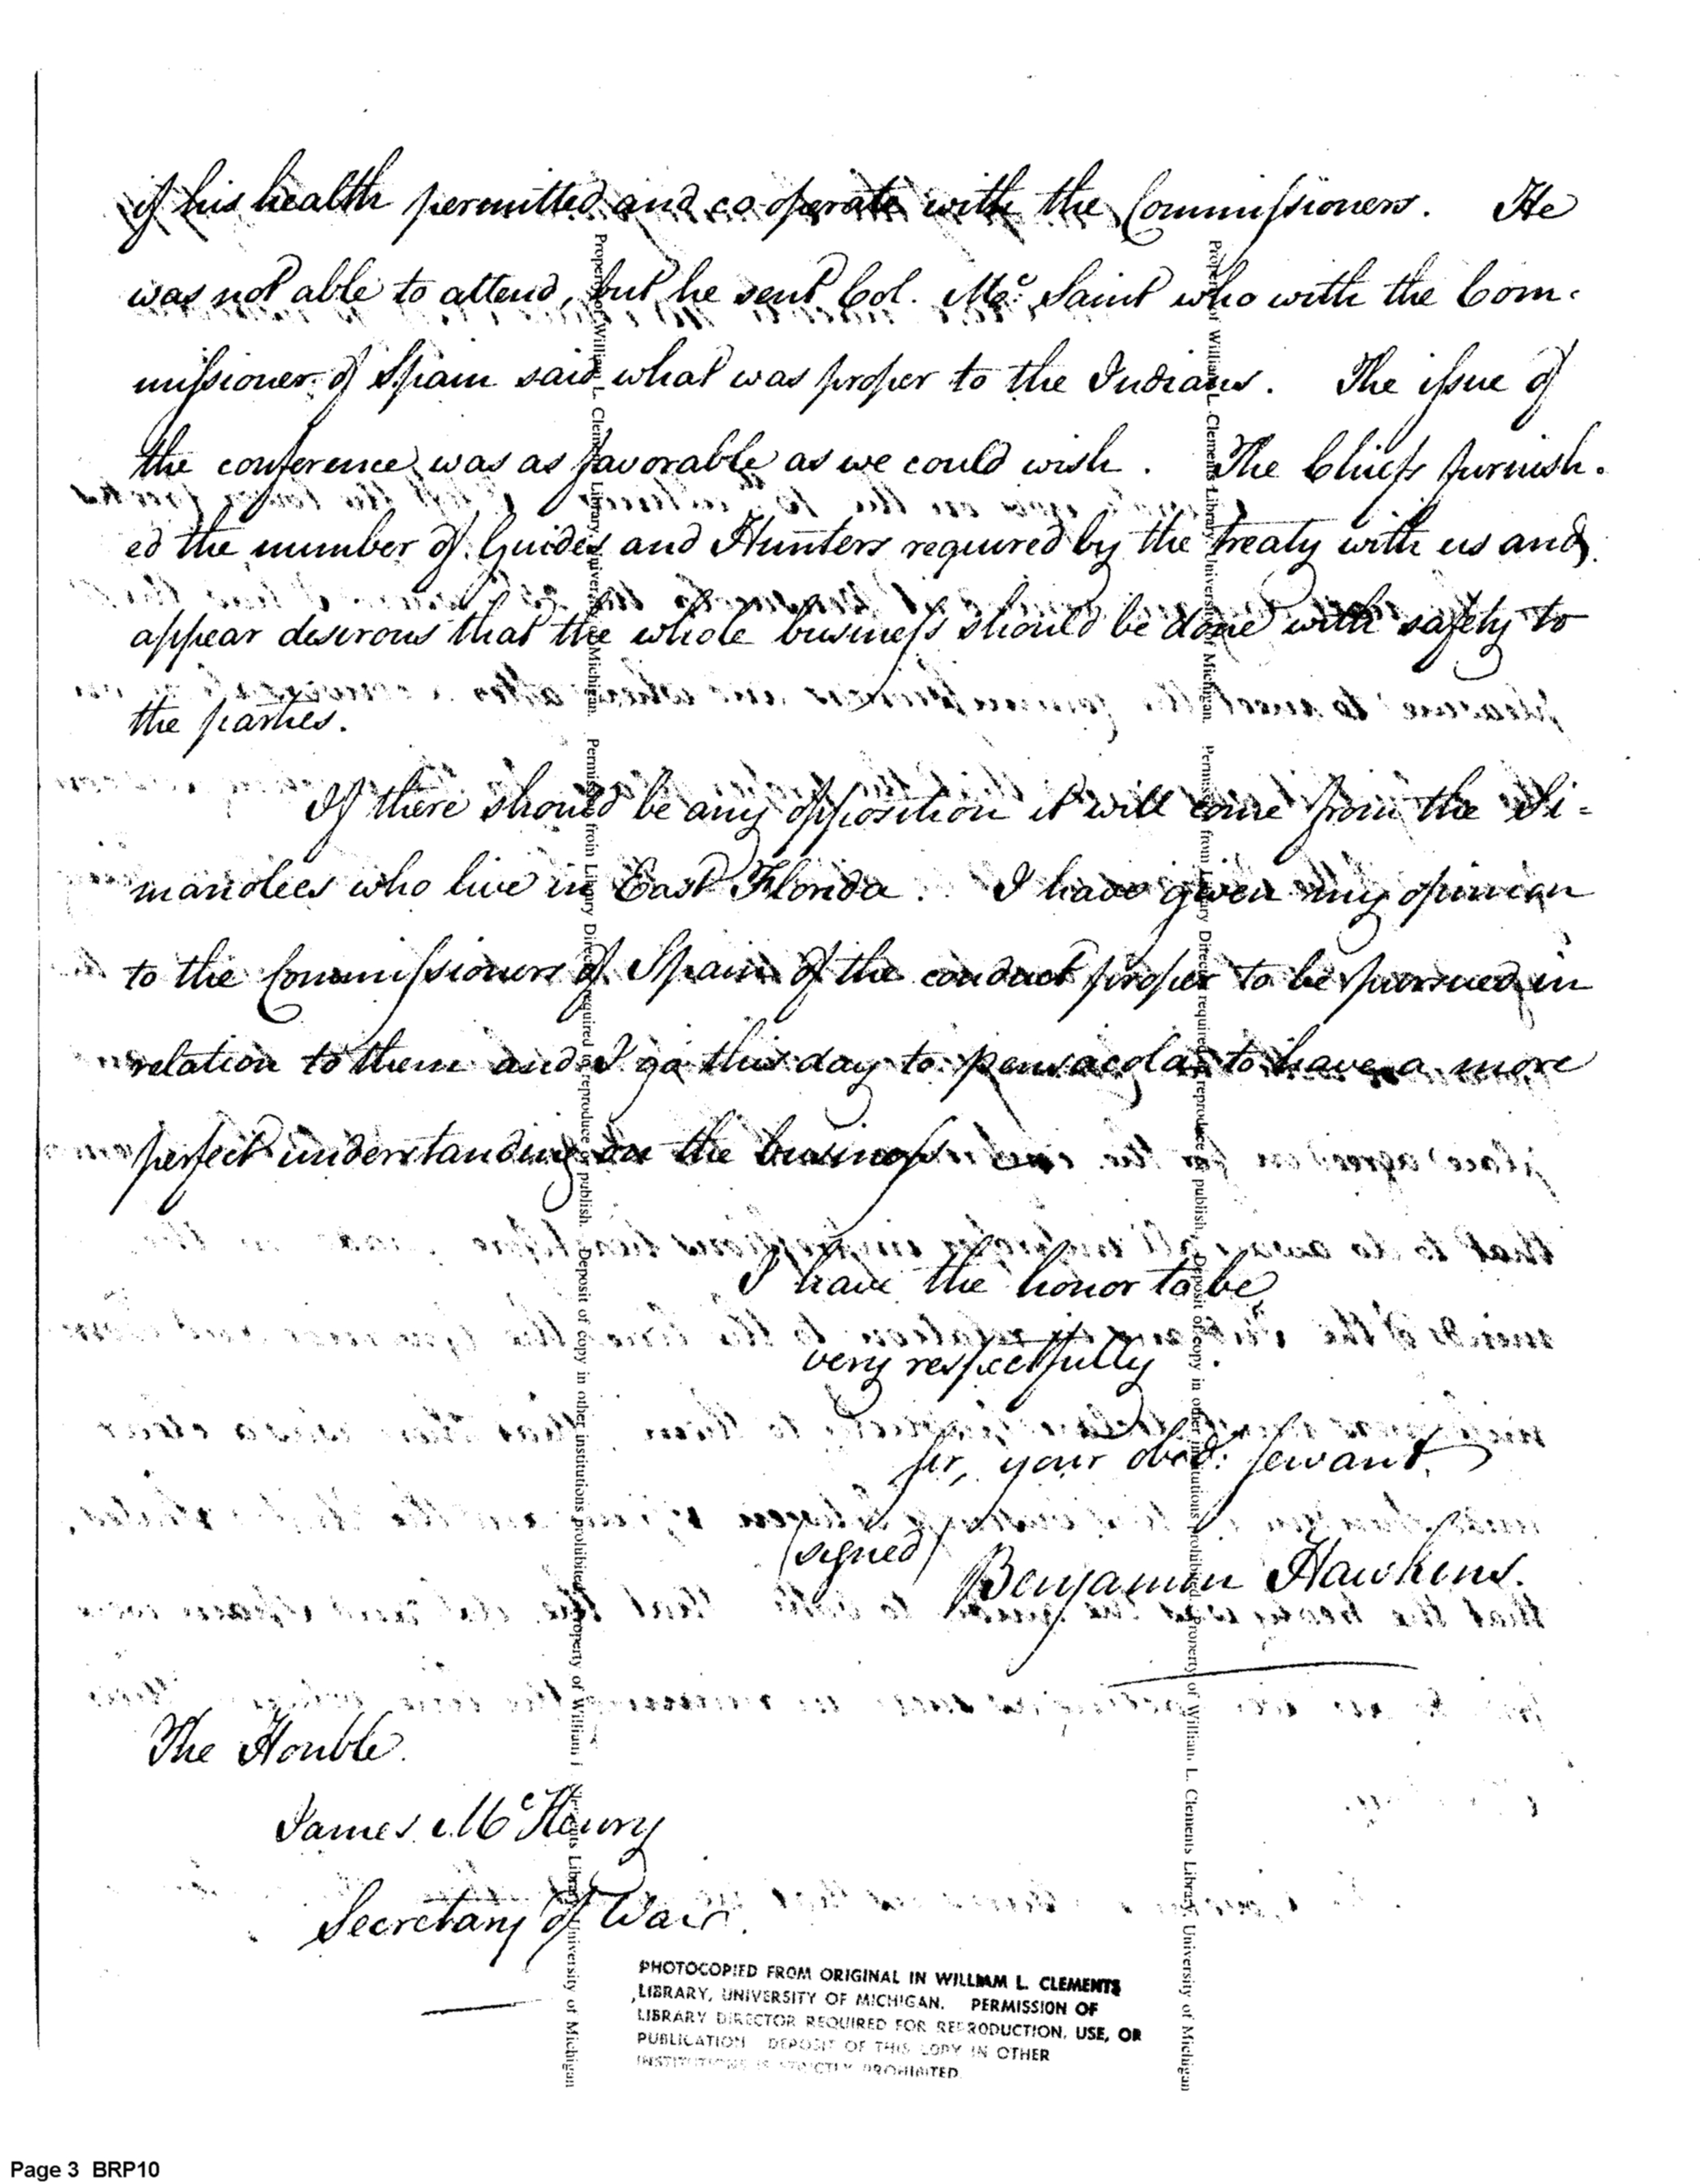 if his health permitted and co operate with the Commissioners. He
was not able to attend, but he sent Col. Mc. Saint who with the Com-
missioner of Spain said what was proper to the Indians. The issue of
the conference was as favorable as we could wish. The Chiefs furnish-
ed the number of Guides and Hunters required by the treaty with us and
appear desirous that the whole business should be done with safety to
the parties.
If there should be any opposition it will come from the Si=
manolees who live in East Florida. I have given my opinion
to the Commissioners of Spain of the conduct proper to be pursued in
relation to them and I go this day to pensacola to have a more
perfect understanding on the business
I have the honor to be
very respectfully
Sir, your obed: servant
(signed) Benjamin Hawkins.
The Honble.
James McHenry
Secretary of War.
PHOTOCOPIED FROM ORIGINAL IN WILLIAM L. CLEMENTS
LIBRARY, UNIVERSITY OF MICHIGAN. PERMISSION OF
LIBRARY DIRECTOR REQUIRED FOR REPRODUCTION, USE, OR
PUBLICATION DEPOSIT OF THIS COPY IN OTHER
INSTITUTIONS IS STRICTLY PROHIBITED.
Property of William L. Clements Library, University of Michigan. Permission from Library Director required to reproduce or publish. Deposit of copy in other institutions prohibited. Property of William L. Clements Library, University of Michigan
Property of William L. Clements Library, University of Michigan. Permission from Library Director required to reproduce or publish. Deposit of copy in other institutions prohibited. Property of William L. Clements Library, University of Michigan
Page 3 BRP10